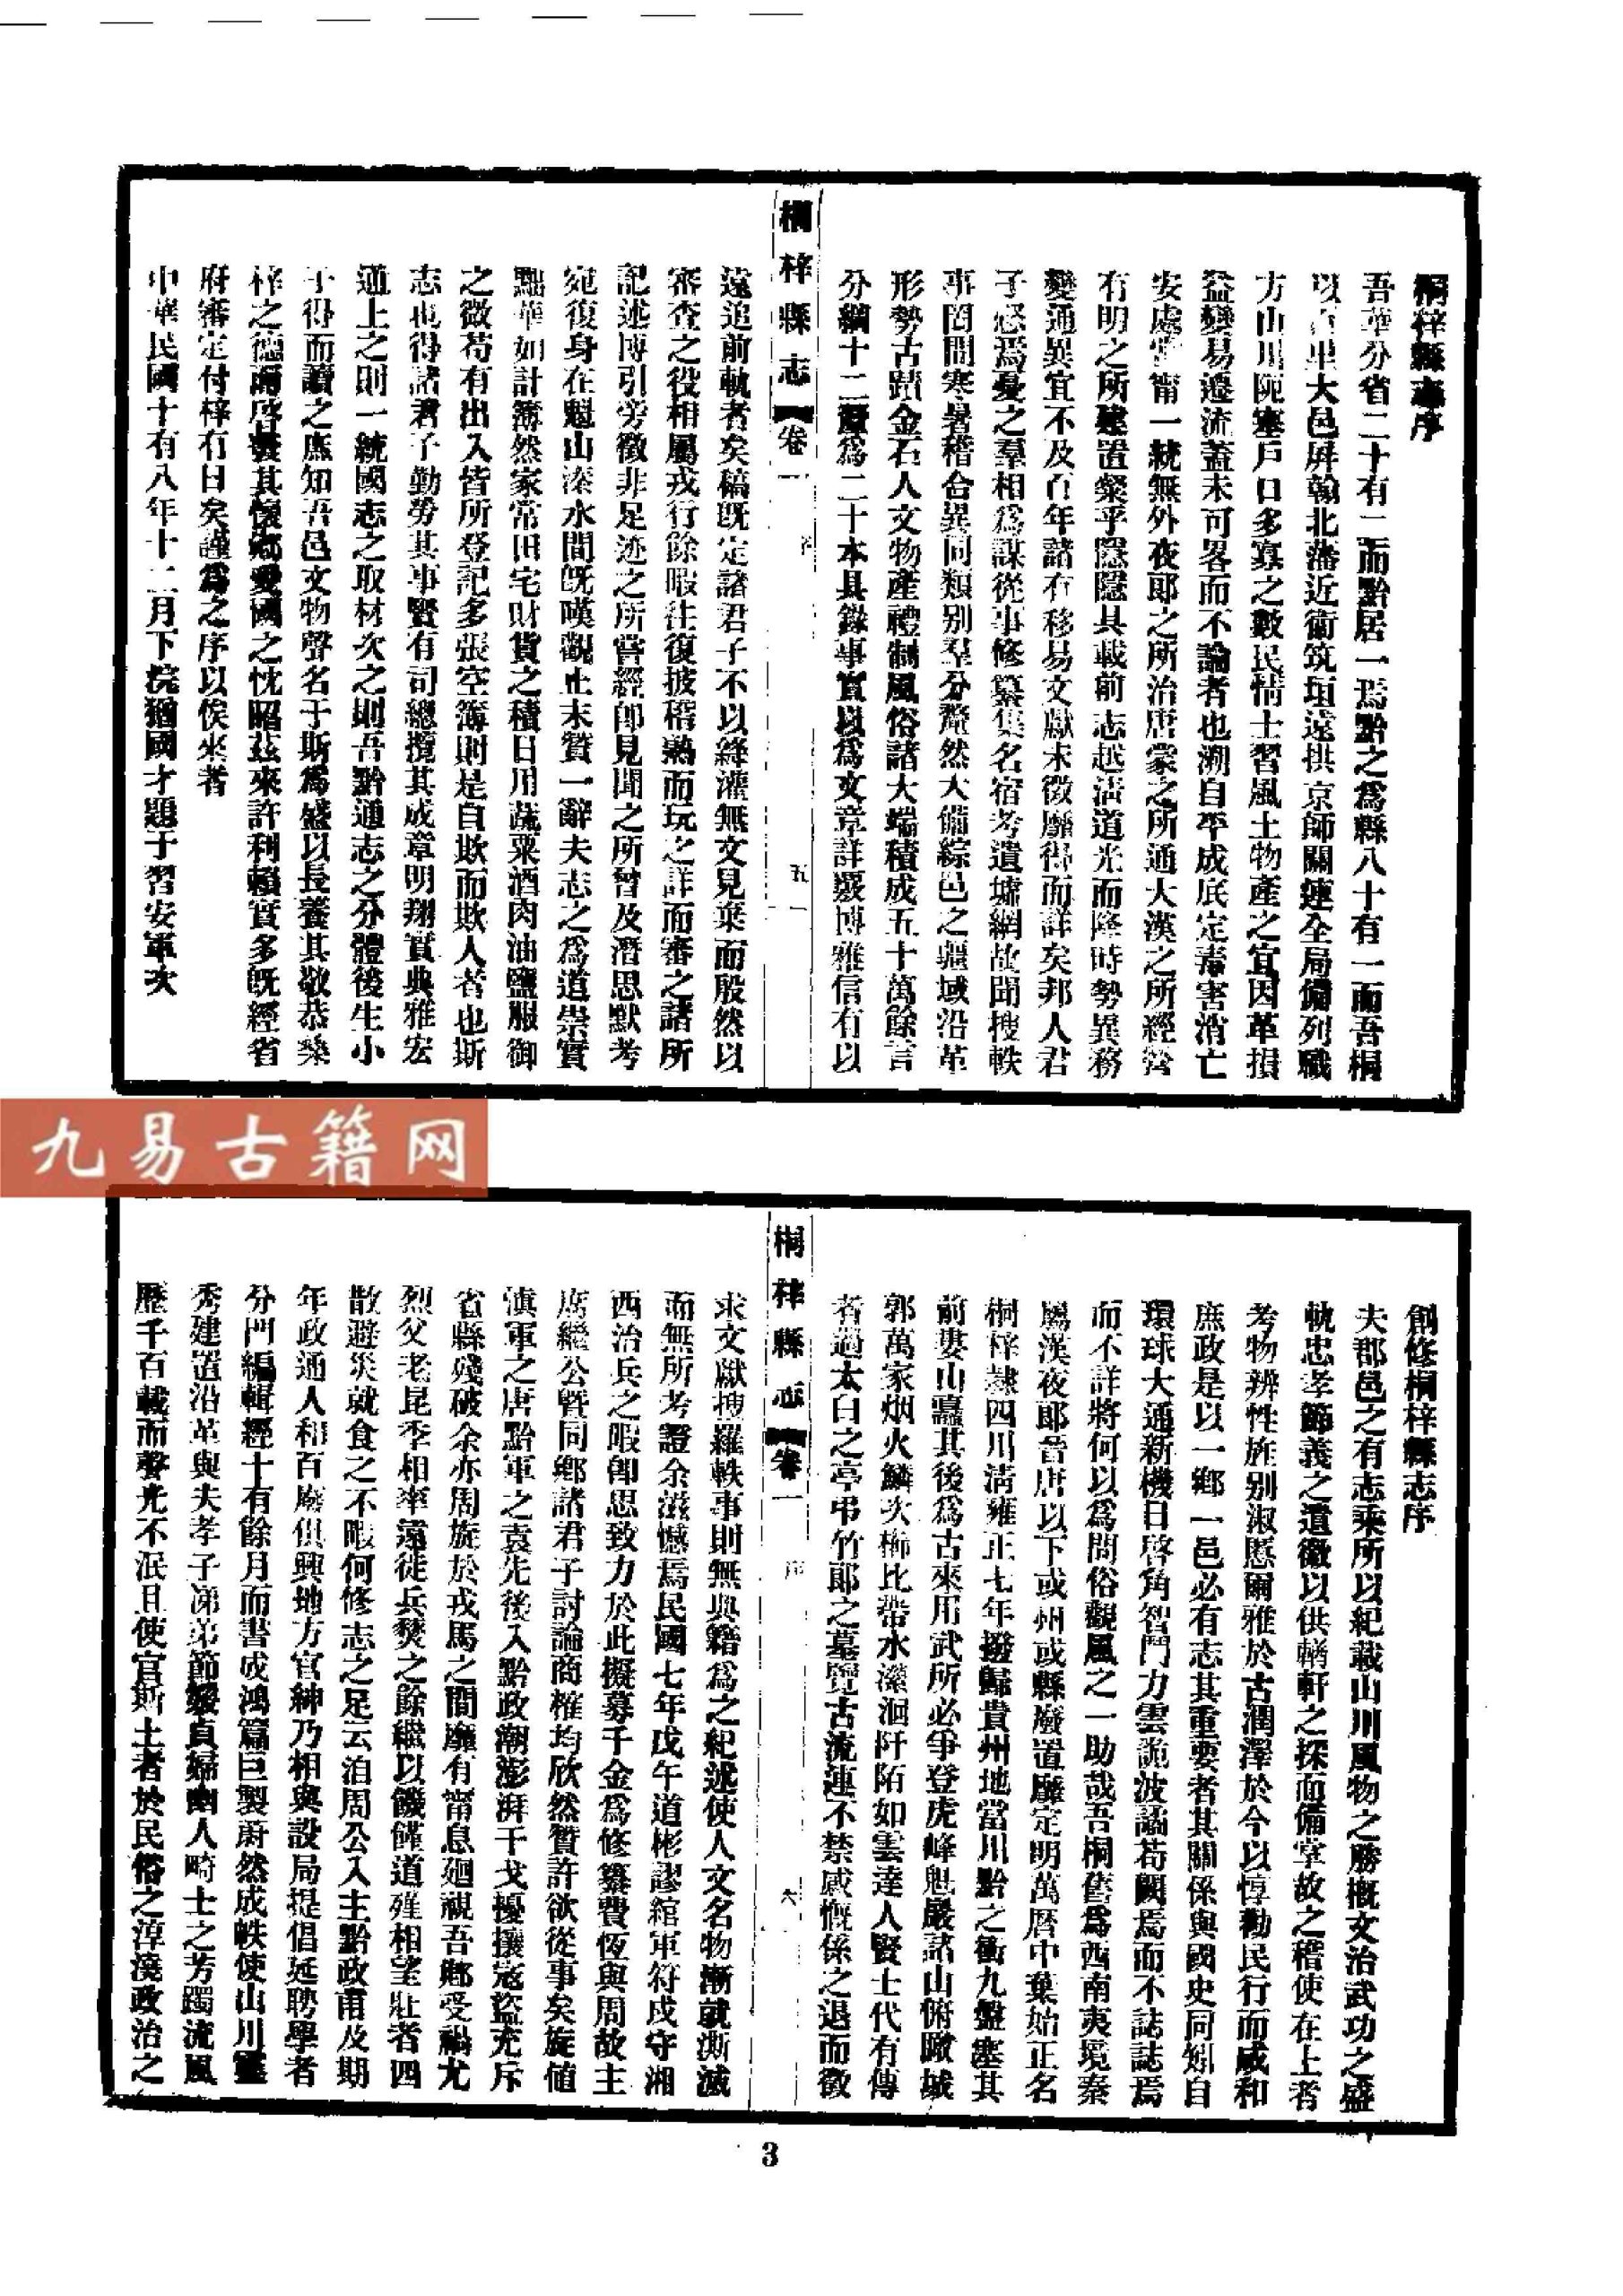 桐梓縣志序
吾華分省二十有二而黔居一焉黔之爲縣八十有一而吾桐
以 里大邑屏翰北藩近衛筑垣遠拱京師關連全局備列職
方山川阨塞戶口多寡之數民情士習風土物產之宜因革損
益變易遷流蓋未可畧而不論者也溯自平成底定 害消亡
安處 甯一統無外夜郎之所治唐蒙之所通大漢之所經營
有明之所建置粲乎隱隱具載前志越清道光而降時勢異務
變通異宜不及百年諸有移易文獻未徵靡得而詳矣邦人君
子惄焉憂之羣相爲謀從事修纂集名宿考遺墟網故聞搜軼
事閱閒寒暑稽合異同類别羣分釐然大備綜邑之疆域沿革
形勢古蹟金石人文物產禮制風俗諸大端積成五十萬餘言
分綱十二 爲二十本具錄事實以爲文章詳覈博雅信有以
桐梓縣志 卷一 序 五
遠追前軌者矣稿既定諸君子不以絳灌無文見棄而殷然以
審查之役相屬戎行餘暇往復披稽熟而玩之詳而審之諸所
記述博引旁徵非足迹之所嘗經卽見聞之所曾及潛思默考
宛復身在魁山溱水間旣嘆觀止末贊一辭夫志之爲道崇實
黜華如計簿然家常田宅財貨之積日用蔬粟酒肉油鹽服御
之微苟有出入皆所登記多張空簿則是自欺而欺人者也斯
志也得諸君子勤勞其事賢有司總攬其成章明翔實典雅宏
通上之則一統國志之取材次之則吾黔通志之分體後生小
子得而讀之庶知吾邑文物聲名于斯爲盛以長養其敬恭桑
梓之德而啓發其懷鄉愛國之忱昭茲來許利賴實多旣經省
府審定付梓有日矣謹爲之序以俟來者
中華民國十有八年十二月下浣猶國才題于習安軍次
創修桐梓縣志序
夫郡邑之有志乘所以紀載山川風物之勝概文治武功之盛
軌忠孝節義之遺徽以供輶軒之採而備掌故之稽使在上者
考物辨性旌别淑慝爾雅於古潤澤於今以惇勸民行而咸和
庶政是以一鄉一邑必有志其重要者其關係與國史同矧自
環球大通新機日啓角智鬥力雲詭波譎苟闕焉而不誌誌焉
而不詳將何以爲問俗觀風之一助哉吾桐舊爲西南夷境秦
屬漢夜郎晉唐以下或州或縣廢置靡定明萬曆中葉始正名
桐梓隸四川清雍正七年撥歸貴州地當川黔之衝九盤塞其
前婁山矗其後爲古來用武所必爭登虎峰魁巖諸山俯瞰城
郭萬家烟火鱗次櫛比帶水瀠洄阡陌如雲達人賢士代有傳
者過太白之亭弔竹郎之墓覽古流連不禁感慨係之退而徵
桐梓縣志 卷一 序 六
求文獻搜羅軼事則無典籍爲之紀述使人文名物漸就澌滅
而無所考證余滋憾焉民國七年戊午道彬謬綰軍符戍守湘
西治兵之暇卽思致力於此擬募千金爲修纂費恆與周故主
席繼公暨同鄉諸君子討論商榷均欣然贊許欲從事矣旋値
滇軍之唐黔軍之袁先後入黔政潮澎湃干戈擾攘寇盜充斥
省縣殘破余亦周旋於戎馬之間靡有甯息廻視吾鄉受禍尤
烈父老昆季相率遠徙兵燹之餘繼以饑饉道殣相望壯者四
散避災就食之不暇何修志之足云洎周公入主黔政甫及期
年政通人和百廢俱興地方官紳乃相與設局提倡延聘學者
分門編輯經十有餘月而書成鴻篇巨製蔚然成帙使山川靈
秀建置沿革與夫孝子悌弟節婺貞婦幽人畸士之芳躅流風
歷千百載而聲光不泯且使官斯土者於民俗之淳澆政治之
3
九易古籍网